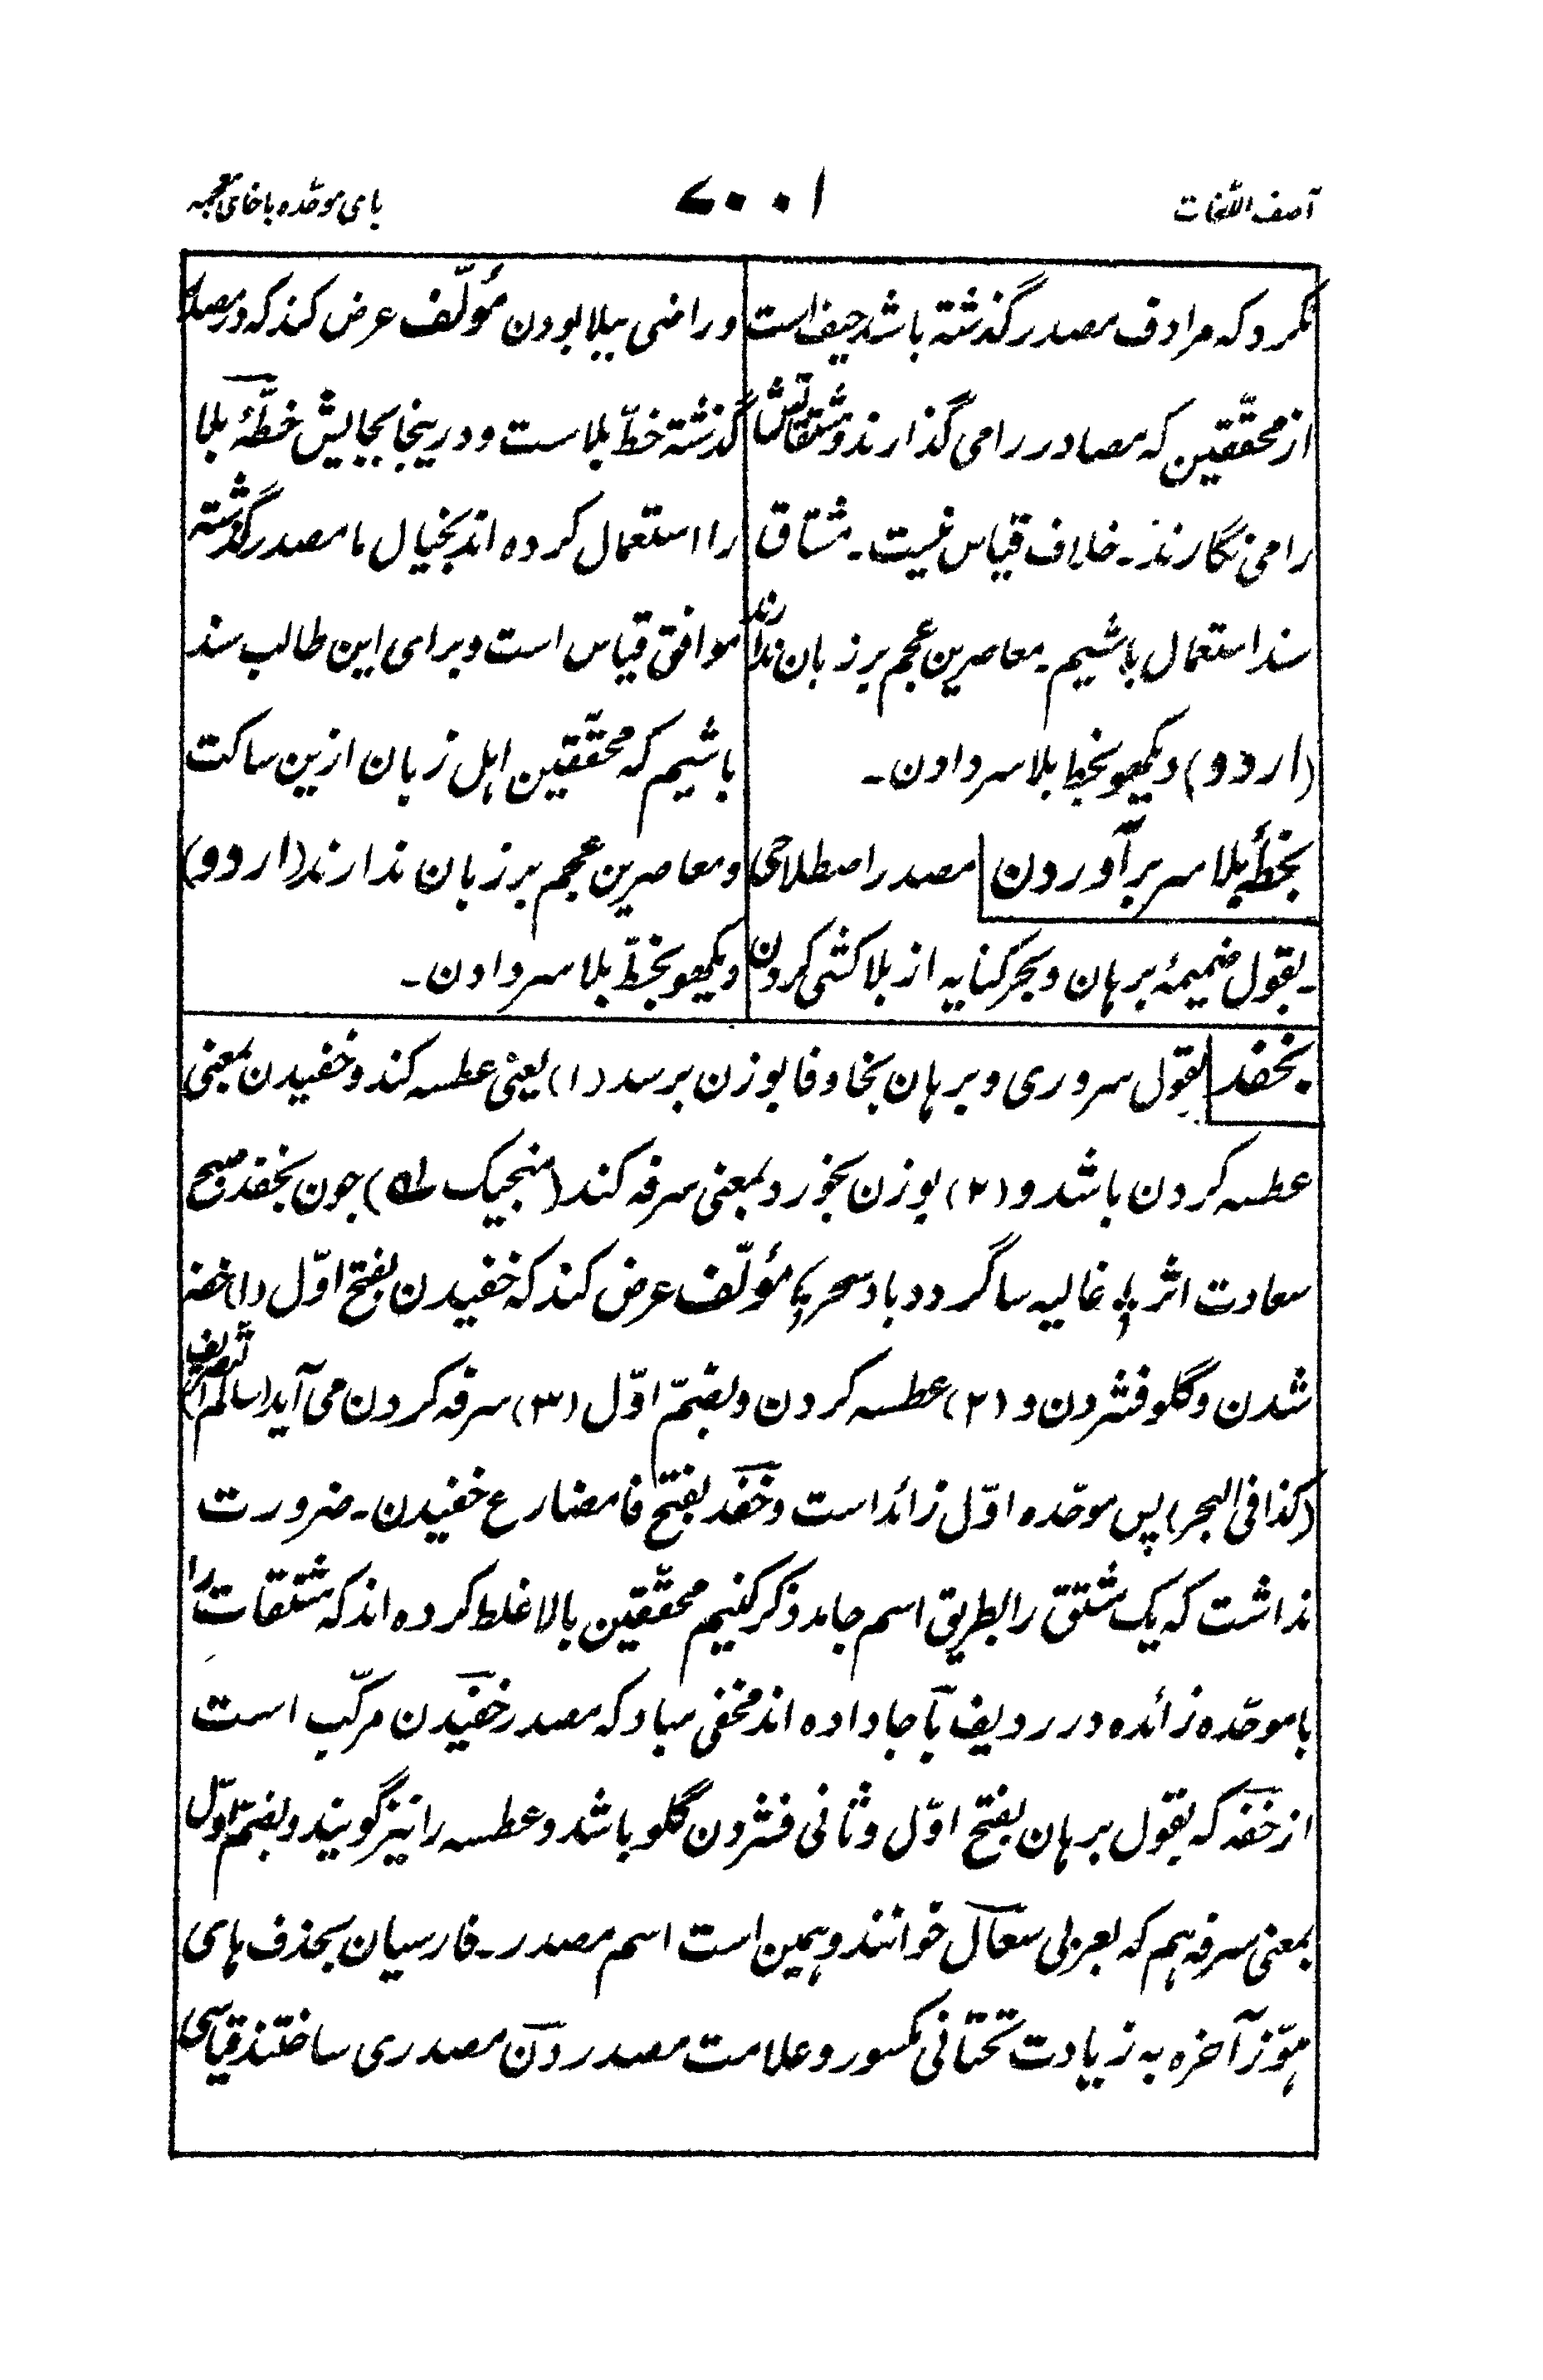 آصف اللغات
۷۰۰۱
بای موحّده با خای معجمہ
نکرد کہ مرادف مصدر گذشتہ باشد حیف است
از محقّقین کہ مصادر را می گذارند و مشتقاتش
را می نگارند۔ خلاف قیاس نیست۔ مشتاق
سند استعمال باشیم۔ معاصرین عجم بر زبان ندارند
(اردو) دیکھو بخط بلا سر دادن۔
بخطّۂ بلا سر برآوردن مصدر اصطلاحی
۔بقول ضمیمۂ برہان و بحر کنایہ از بلا کشی کردن
و راضی ببلا بودن مؤلّف عرض کند کہ در مصدر
گذشتہ خطّ بلاست و درینجا بجایش خطّۂ بلا
را استعمال کردہ اند بخیال ما مصدر گذشتہ
موافق قیاس است و برای این طالب سند
باشیم کہ محقّقین اہل زبان ازین ساکت
و معاصرین عجم بر زبان ندارند (اردو)
دیکھو بخطّ بلا سر دادن۔
بخفد بقول سروری و برہان بخا و فا بوزن برسد (۱) یعنی عطسہ کند و خفیدن بمعنی
عطسہ کردن باشد و (۲) بوزن بخورد بمعنی سرفہ کند (منجیک ؎) چون بخفد صبح
سعادت اثر ؛ غالیہ سا گردد باد سحر ؛ مؤلّف عرض کند کہ خفیدن بفتح اوّل (۱) خفہ
شدن و گلو فشردن و (۲) عطسہ کردن و بضمّ اوّل (۳) سرفہ کردن می آید (سالم التصریف)
(کذا فی البحر) پس موحّدہ اوّل زائد است و خفد بفتح فا مضارع خفیدن۔ ضرورت
نداشت کہ یک مشتق را بطریق اسم جامد ذکر کنیم محقّقین بالا غلط کردہ اند کہ مشتقات را
با موحّدہ زائدہ در ردیف با جا دادہ اند مخفی مباد کہ مصدر خفیدن مرکّب است
از خفہ کہ بقول برہان بفتح اوّل و ثانی فشردن گلو باشد و عطسہ را نیز گویند و بضمّ اوّل
بمعنی سرفہ ہم کہ بعربی سعال خوانند و ہمین است اسم مصدر۔ فارسیان بحذف ہای
ہوّز آخرہ بہ زیادت تحتانی مکسور و علامت مصدر دن مصدری ساختند قیاسی